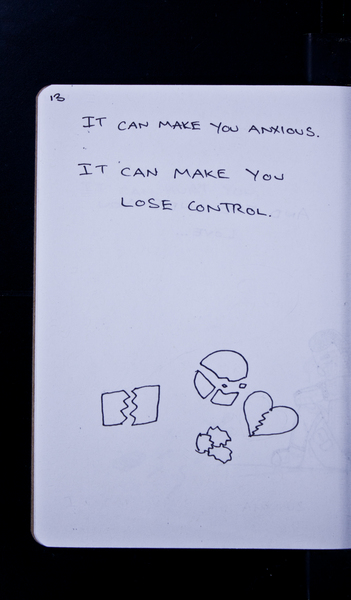 13
IT CAN MAKE YOU ANXIOUS.
IT CAN MAKE YOU
LOSE CONTROL.